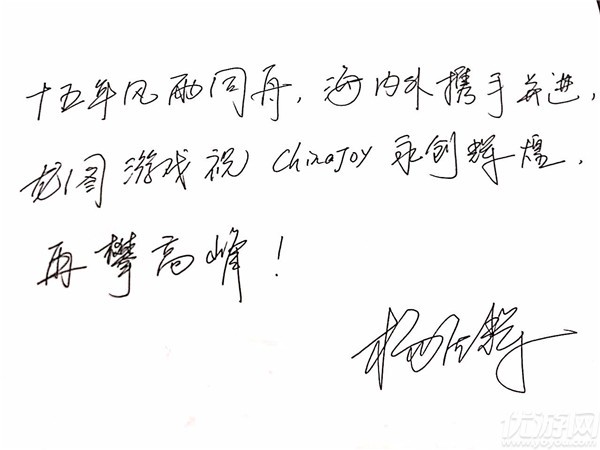 十五年风雨同舟，海内外携手并进，
龙图游戏祝 ChinaJoy 永创辉煌，
再攀高峰！
优游网
www.yoyou.com